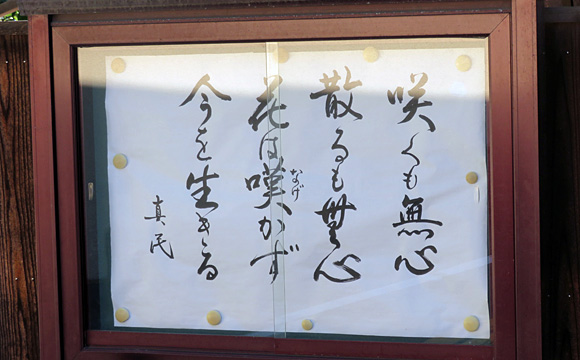 咲くも無心
散るも無心
花は嘆かず
なげ
今を生きる
真民